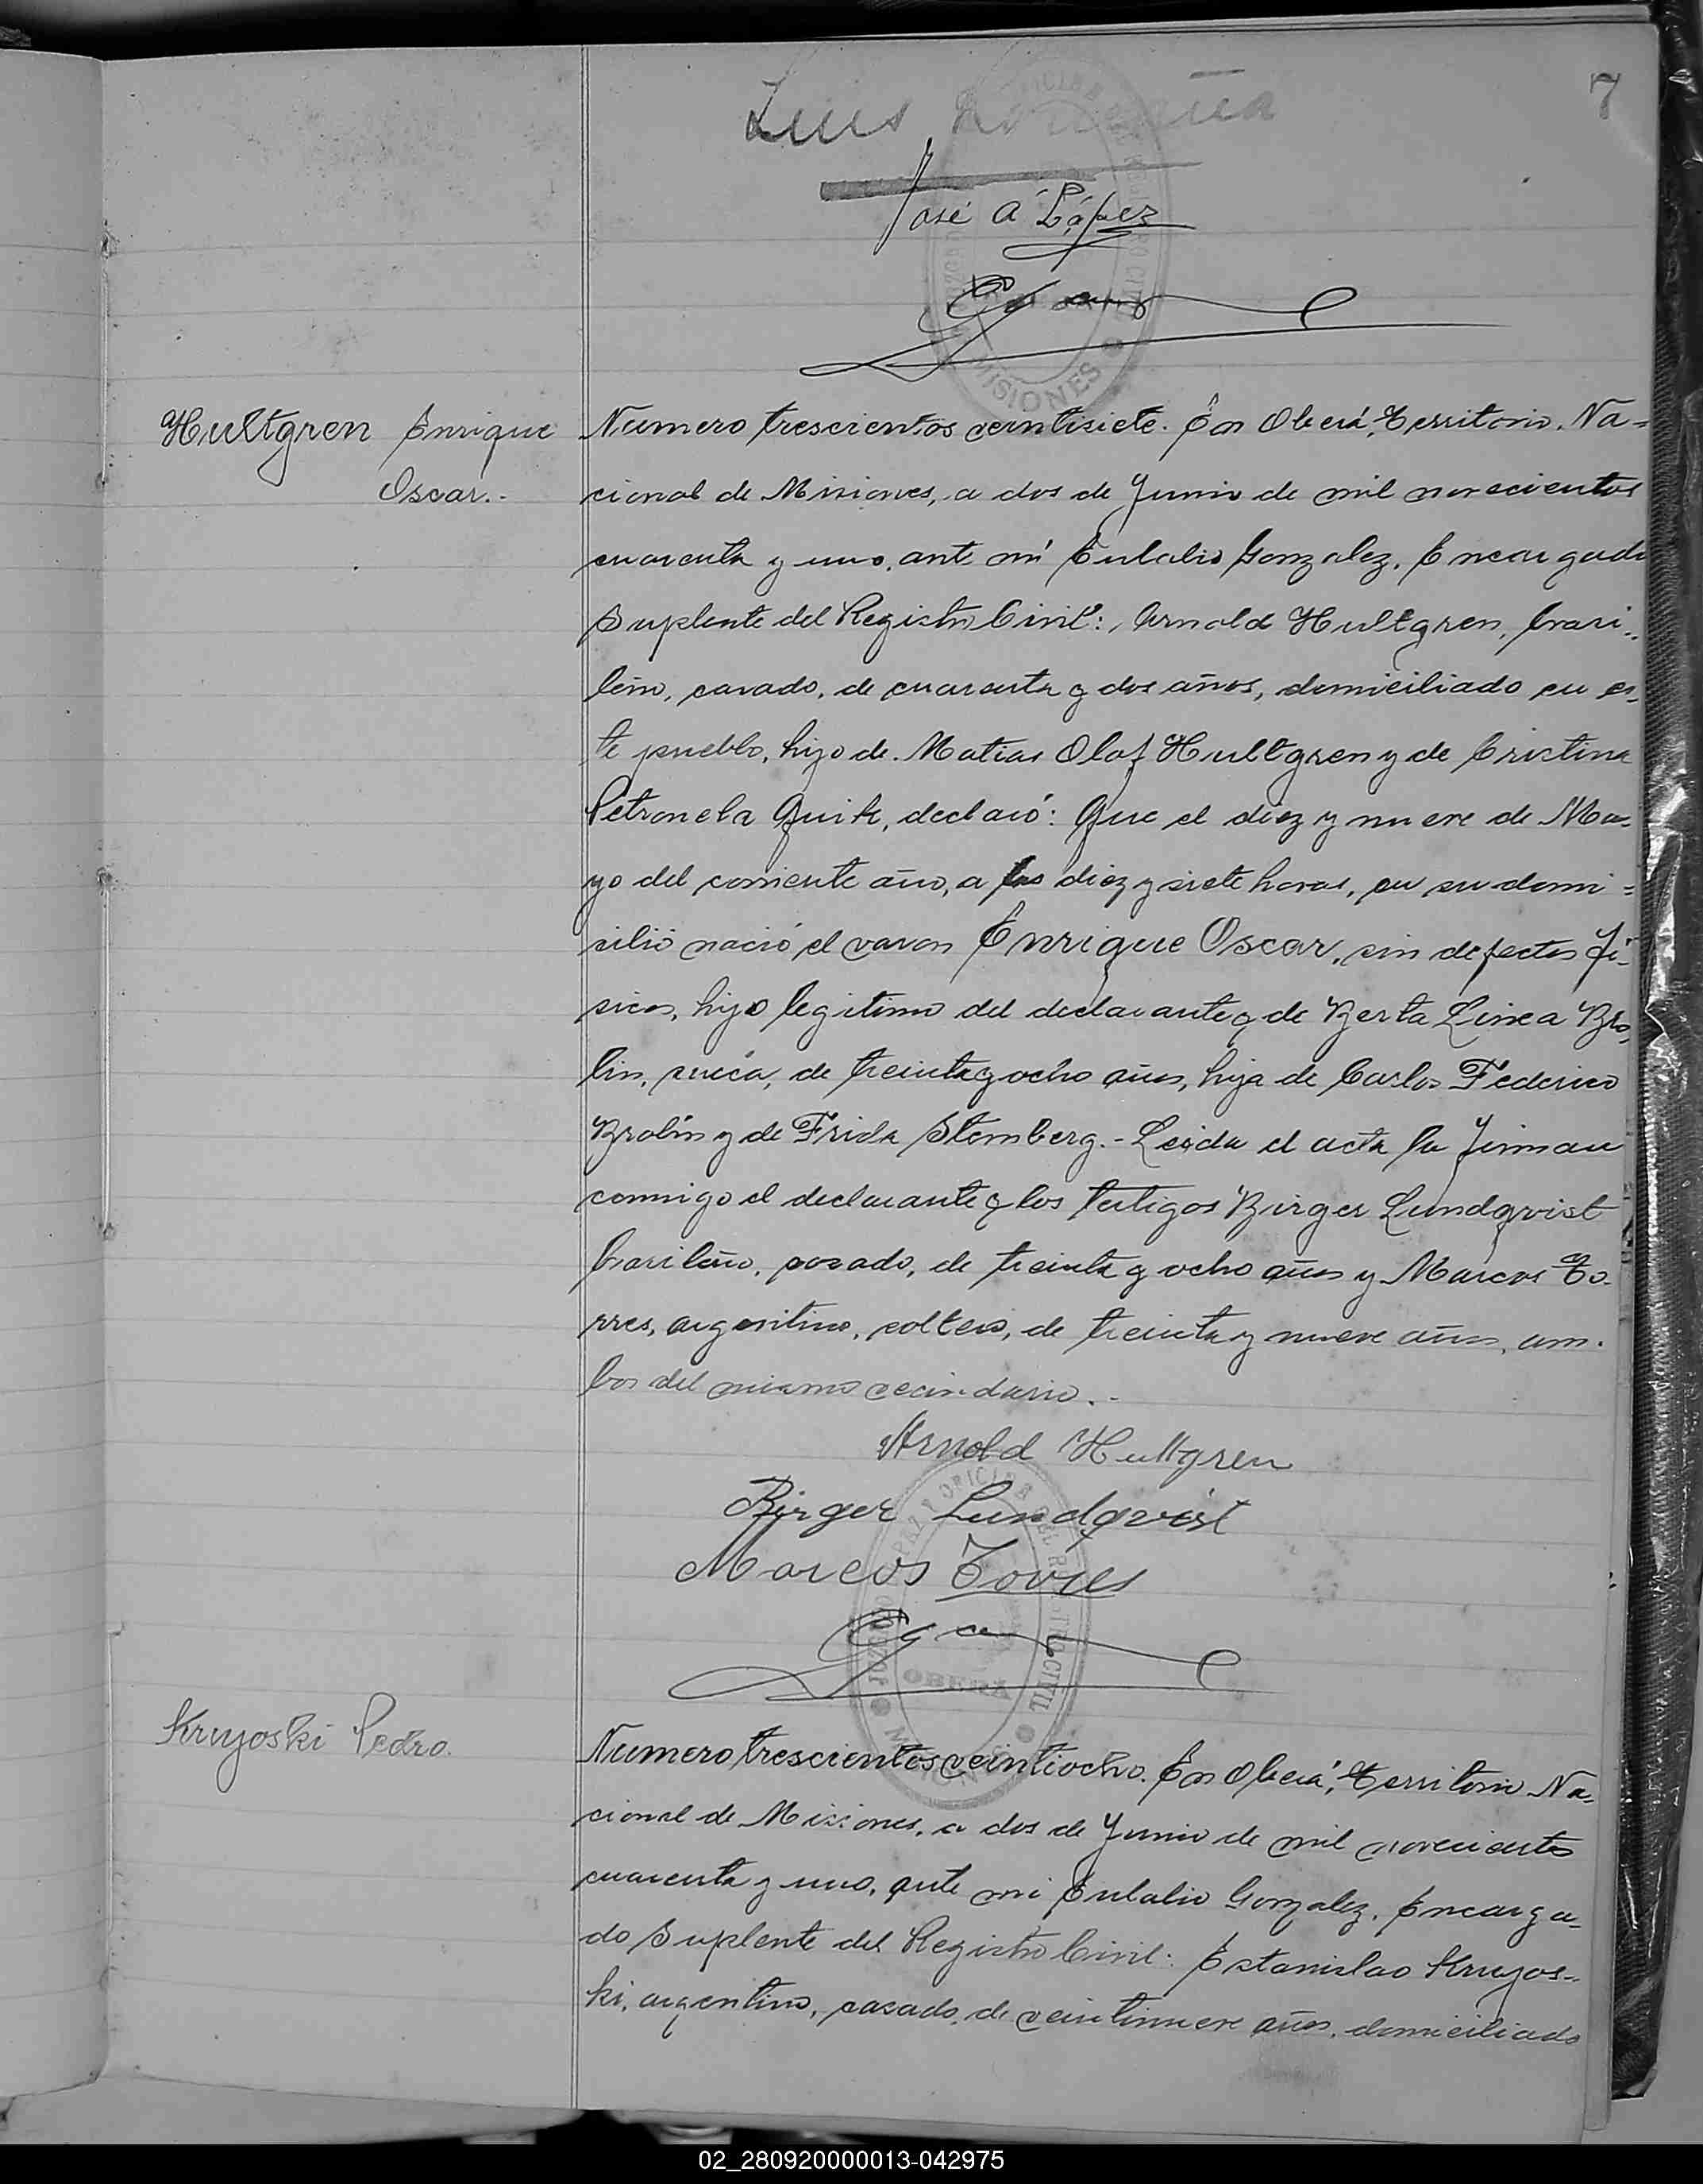 7
Luis
José A López
MISIONES
Hultgren Enrique
Oscar.-
Numero trescientos veintisiete. En Oberá, Territorio Na=
cional de Misiones, a dos de Junio de mil novecientos
cuarenta y uno, ante mi Eulalio Gonzalez, Encargado
Suplente del Registro Civil: Arnold Hultgren, brasi-
leño, casado, de cuarenta y dos años, domiciliado en es-
te pueblo, hijo de Matias Olaf Hultgren y de Cristina
Petronela Quik, declaró: Que el diez y nueve de Ma-
yo del corriente año, a las diez y siete horas, en su domi=
silio nació el varon Enrique Oscar, sin defectos fi-
sicos, hijo legitimo del declarante y de Berta Linea Bro-
lin, sueca, de treinta y ocho años, hija de Carlos Federico
Brolin y de Frida Stemberg.- Leida el acta la firman
conmigo el declarante y los testigos Birger Lundqvist
brasileño, casado, de treinta y ocho años y Marcos To-
rres, argentino, soltero, de treinta y nueve años, am-
bos del mismo vecindario.-
Arnold Hultgren
Birger Lundqvist
Marcos Torres
OBERA
Kruyoski Pedro.
Numero trescientos veintiocho. En Oberá, Territorio Na-
cional de Misiones, a dos de Junio de mil novecientos
cuarenta y uno, ante mi Eulalio Gonzalez, Encarga-
do Suplente del Registro Civil: Estanislao Kruyos-
ki, argentino, casado, de veintinueve años, domiciliado
02_280920000013-042975